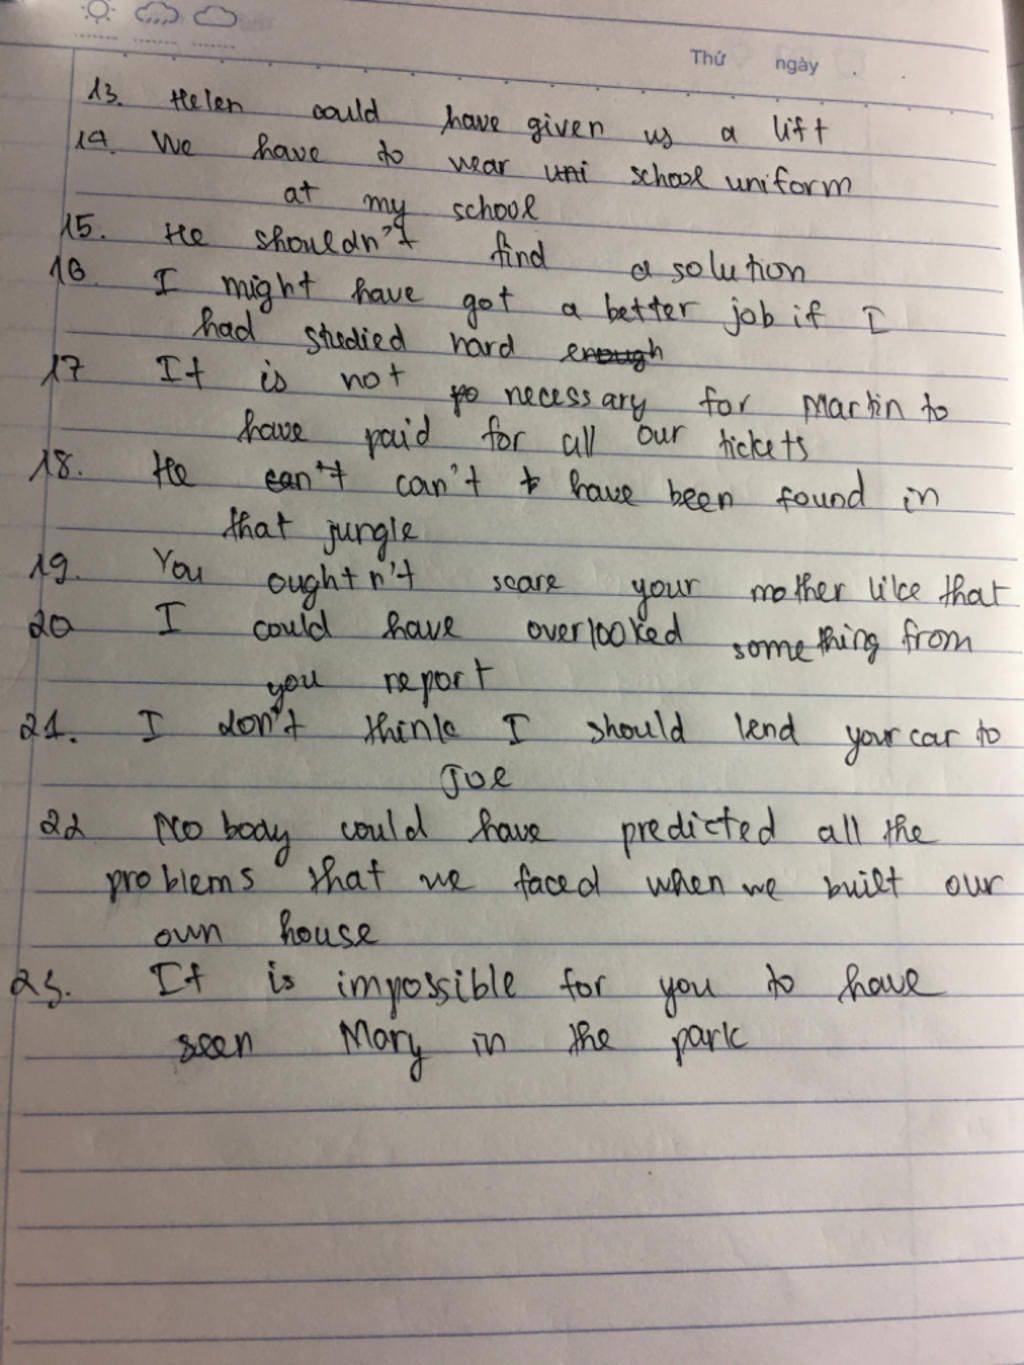 Thứ ngày
13. Helen could have given us a lift
14. We have to wear uni school uniform
at my school
15. He shouldn't find a solution
16. I might have got a better job if I
had studied hard enough
17 It is not po necessary for Martin to
have paid for all our tickets
18. He can't can't t have been found in
that jungle
19. You oughtn't scare your mother like that
20 I could have overlooked something from
you report
21. I don't think I should lend your car to
Joe
22 No body could have predicted all the
problems that we faced when we built our
own house
23. It is impossible for you to have
seen Mary in the park